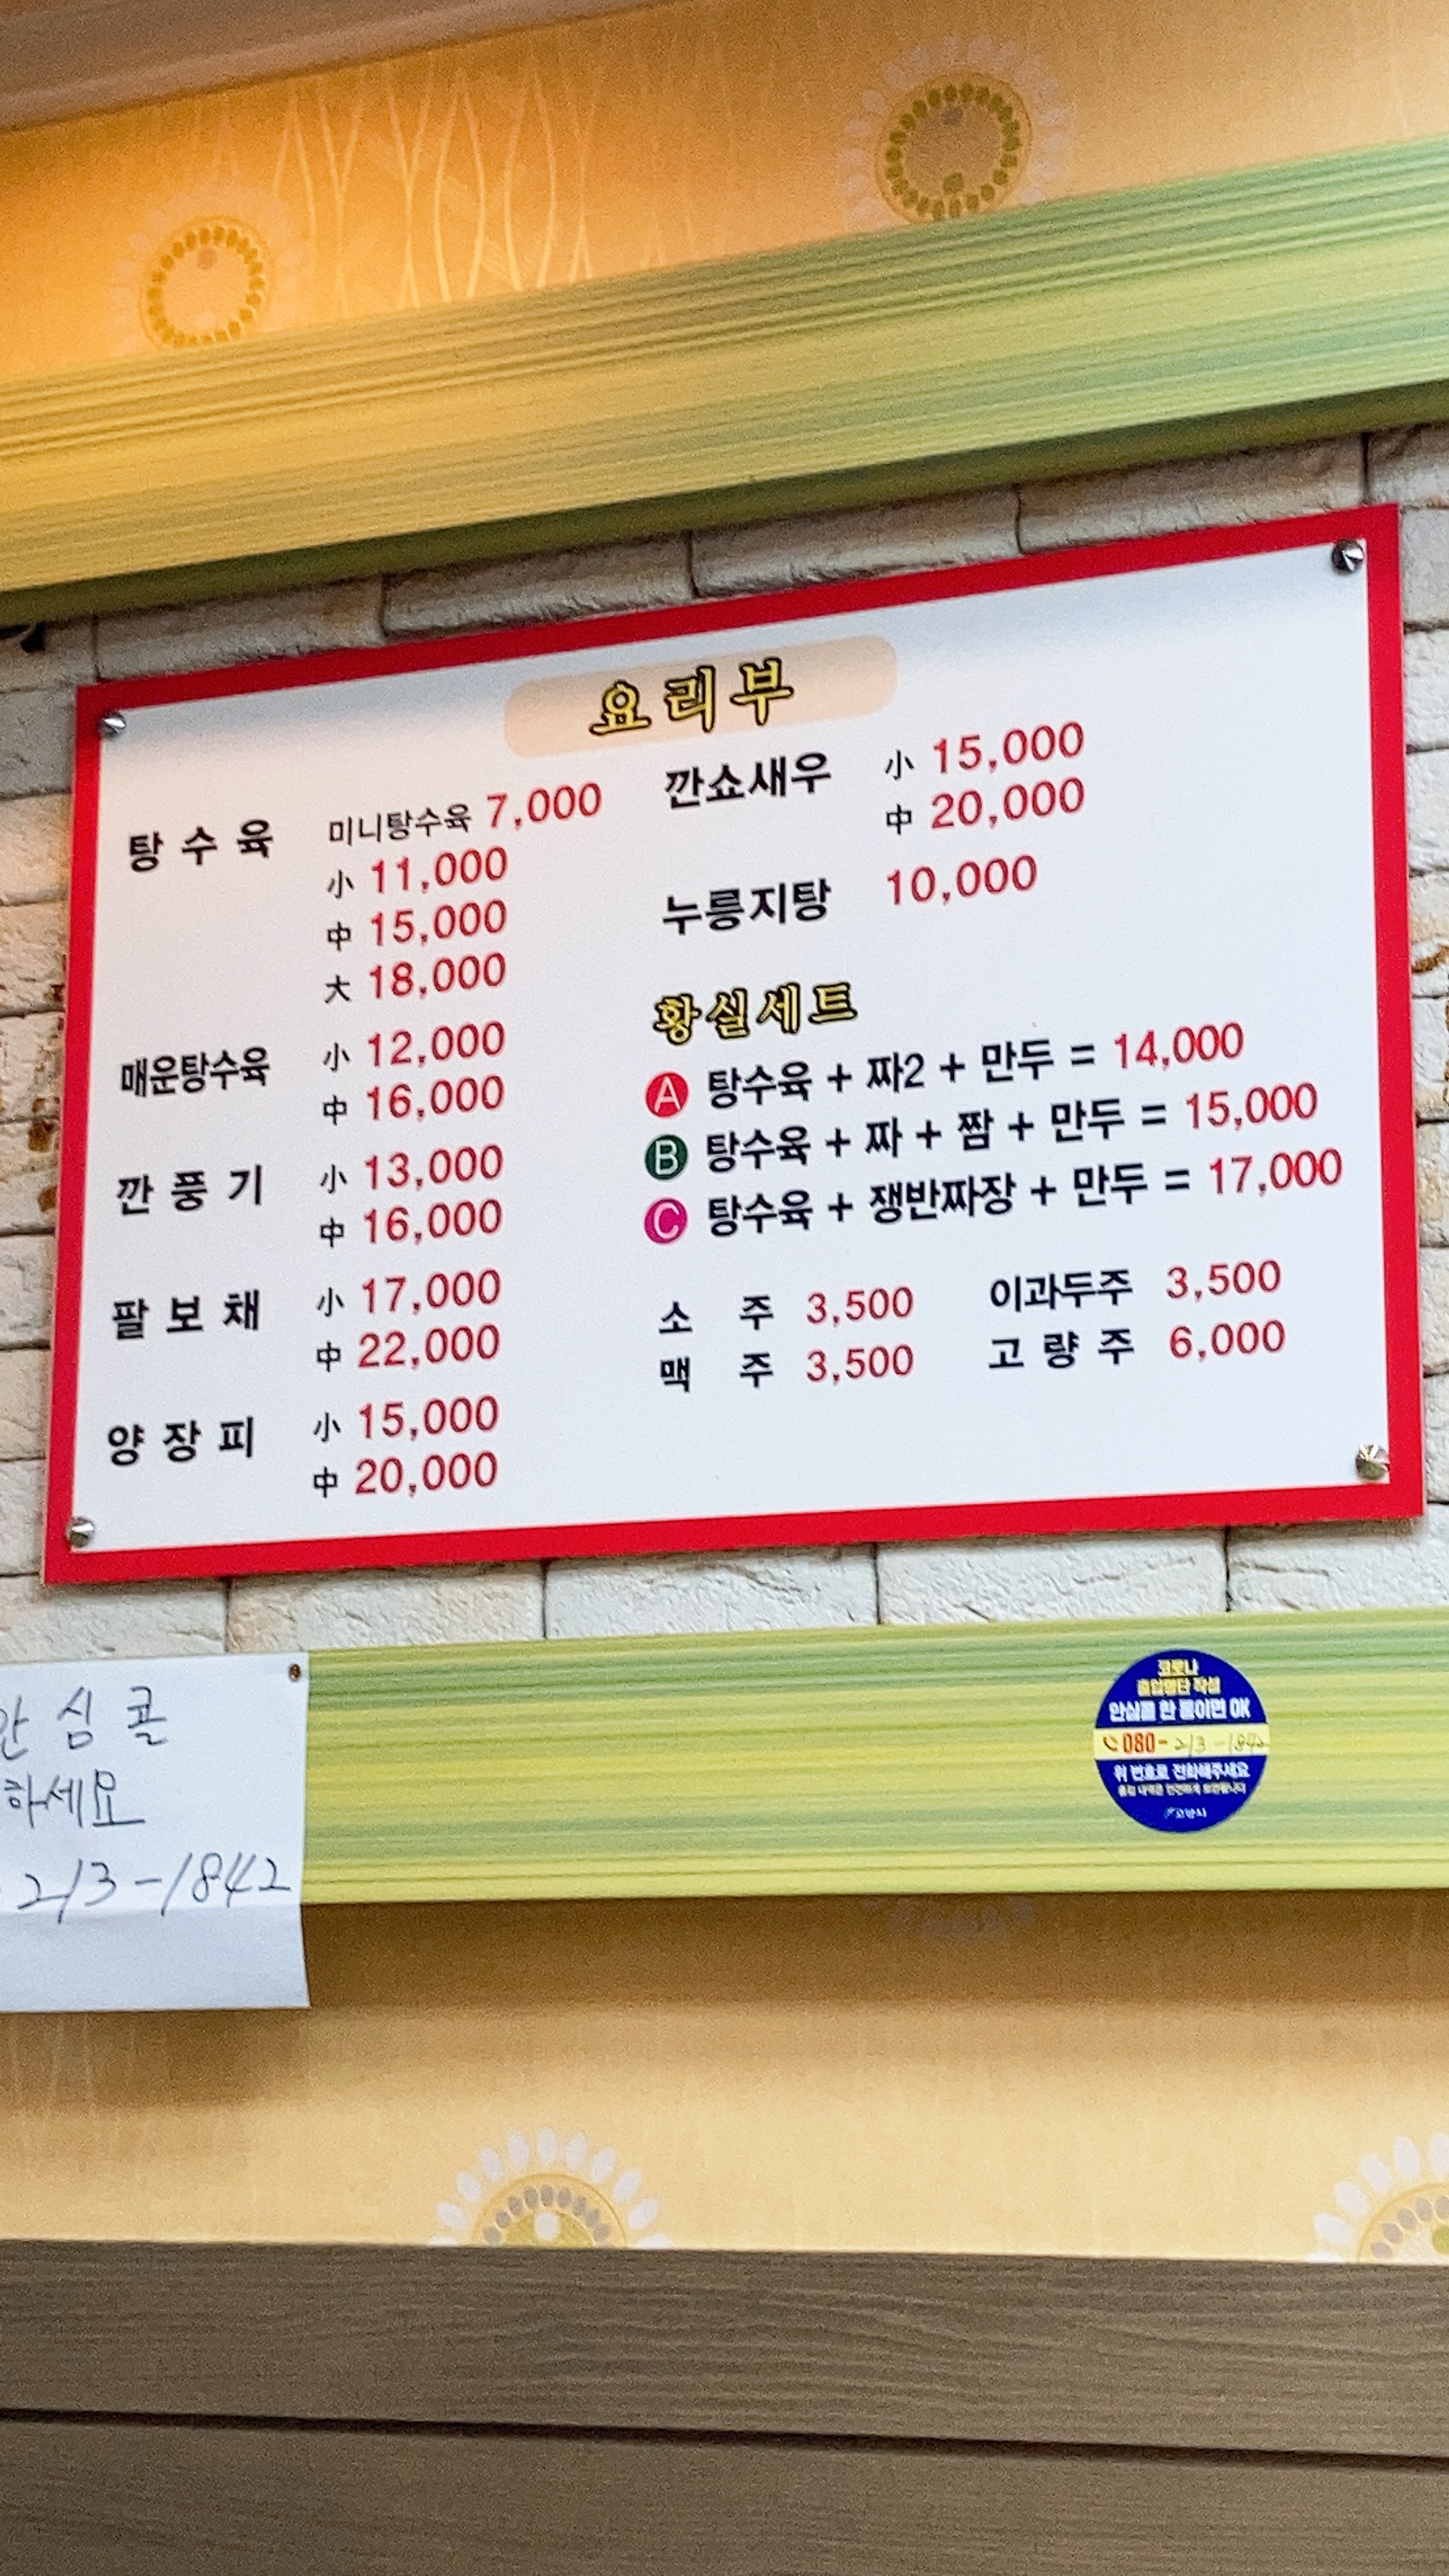 요리부
탕수육 미니탕수육 7,000
小 11,000
中 15,000
大 18,000
매운탕수육 小 12,000
中 16,000
깐풍기 小 13,000
中 16,000
팔보채 小 17,000
中 22,000
양장피 小 15,000
中 20,000
깐쇼새우 小 15,000
中 20,000
누룽지탕 10,000
황실세트
A 탕수육 + 짜2 + 만두 = 14,000
B 탕수육 + 짜 + 짬 + 만두 = 15,000
C 탕수육 + 쟁반짜장 + 만두 = 17,000
소주 3,500 이과두주 3,500
맥주 3,500 고량주 6,000
안심콜
하세요
213-1842
코로나
출입명단 작성
안심콜 한 통이면 OK
080-213-1842
위 번호로 전화해주세요
고양시